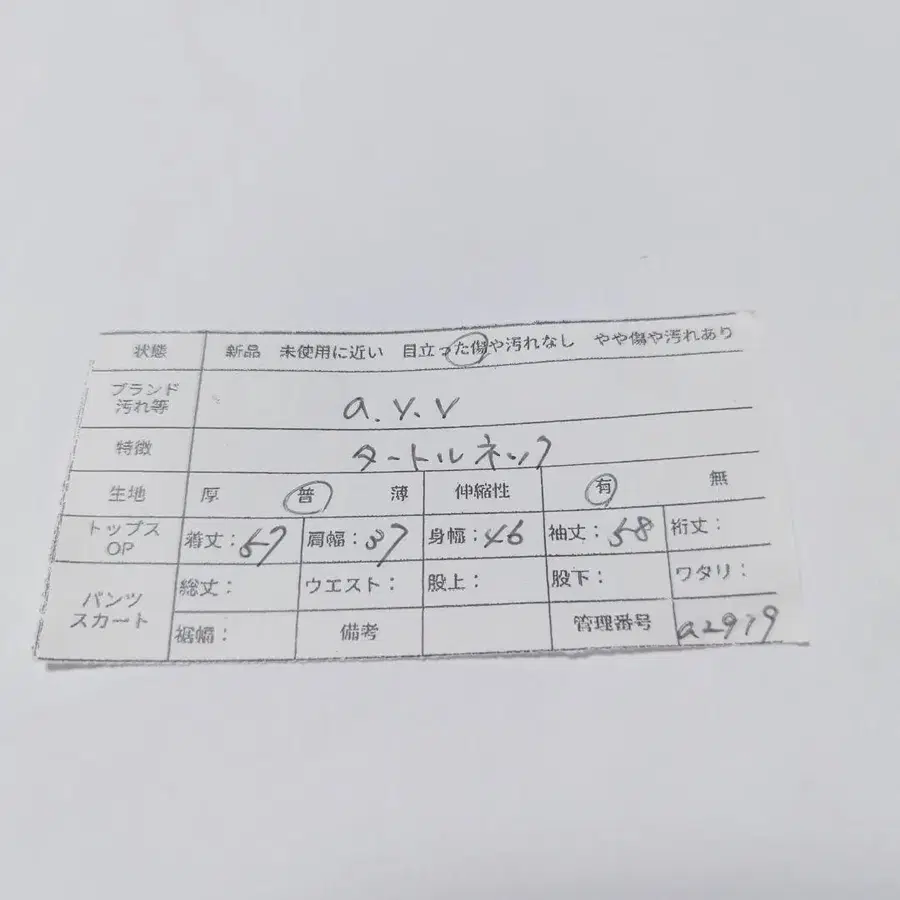 状態 新品 未使用に近い 目立った傷や汚れなし やや傷や汚れあり
ブランド
汚れ等 a.v.v
特徴 タートルネック
生地 厚 普 薄 伸縮性 有 無
トップス
OP 着丈：57 肩幅：37 身幅：46 袖丈：58 裄丈：
パンツ
スカート 総丈： ウエスト： 股上： 股下： ワタリ：
裾幅： 備考 管理番号 a2919